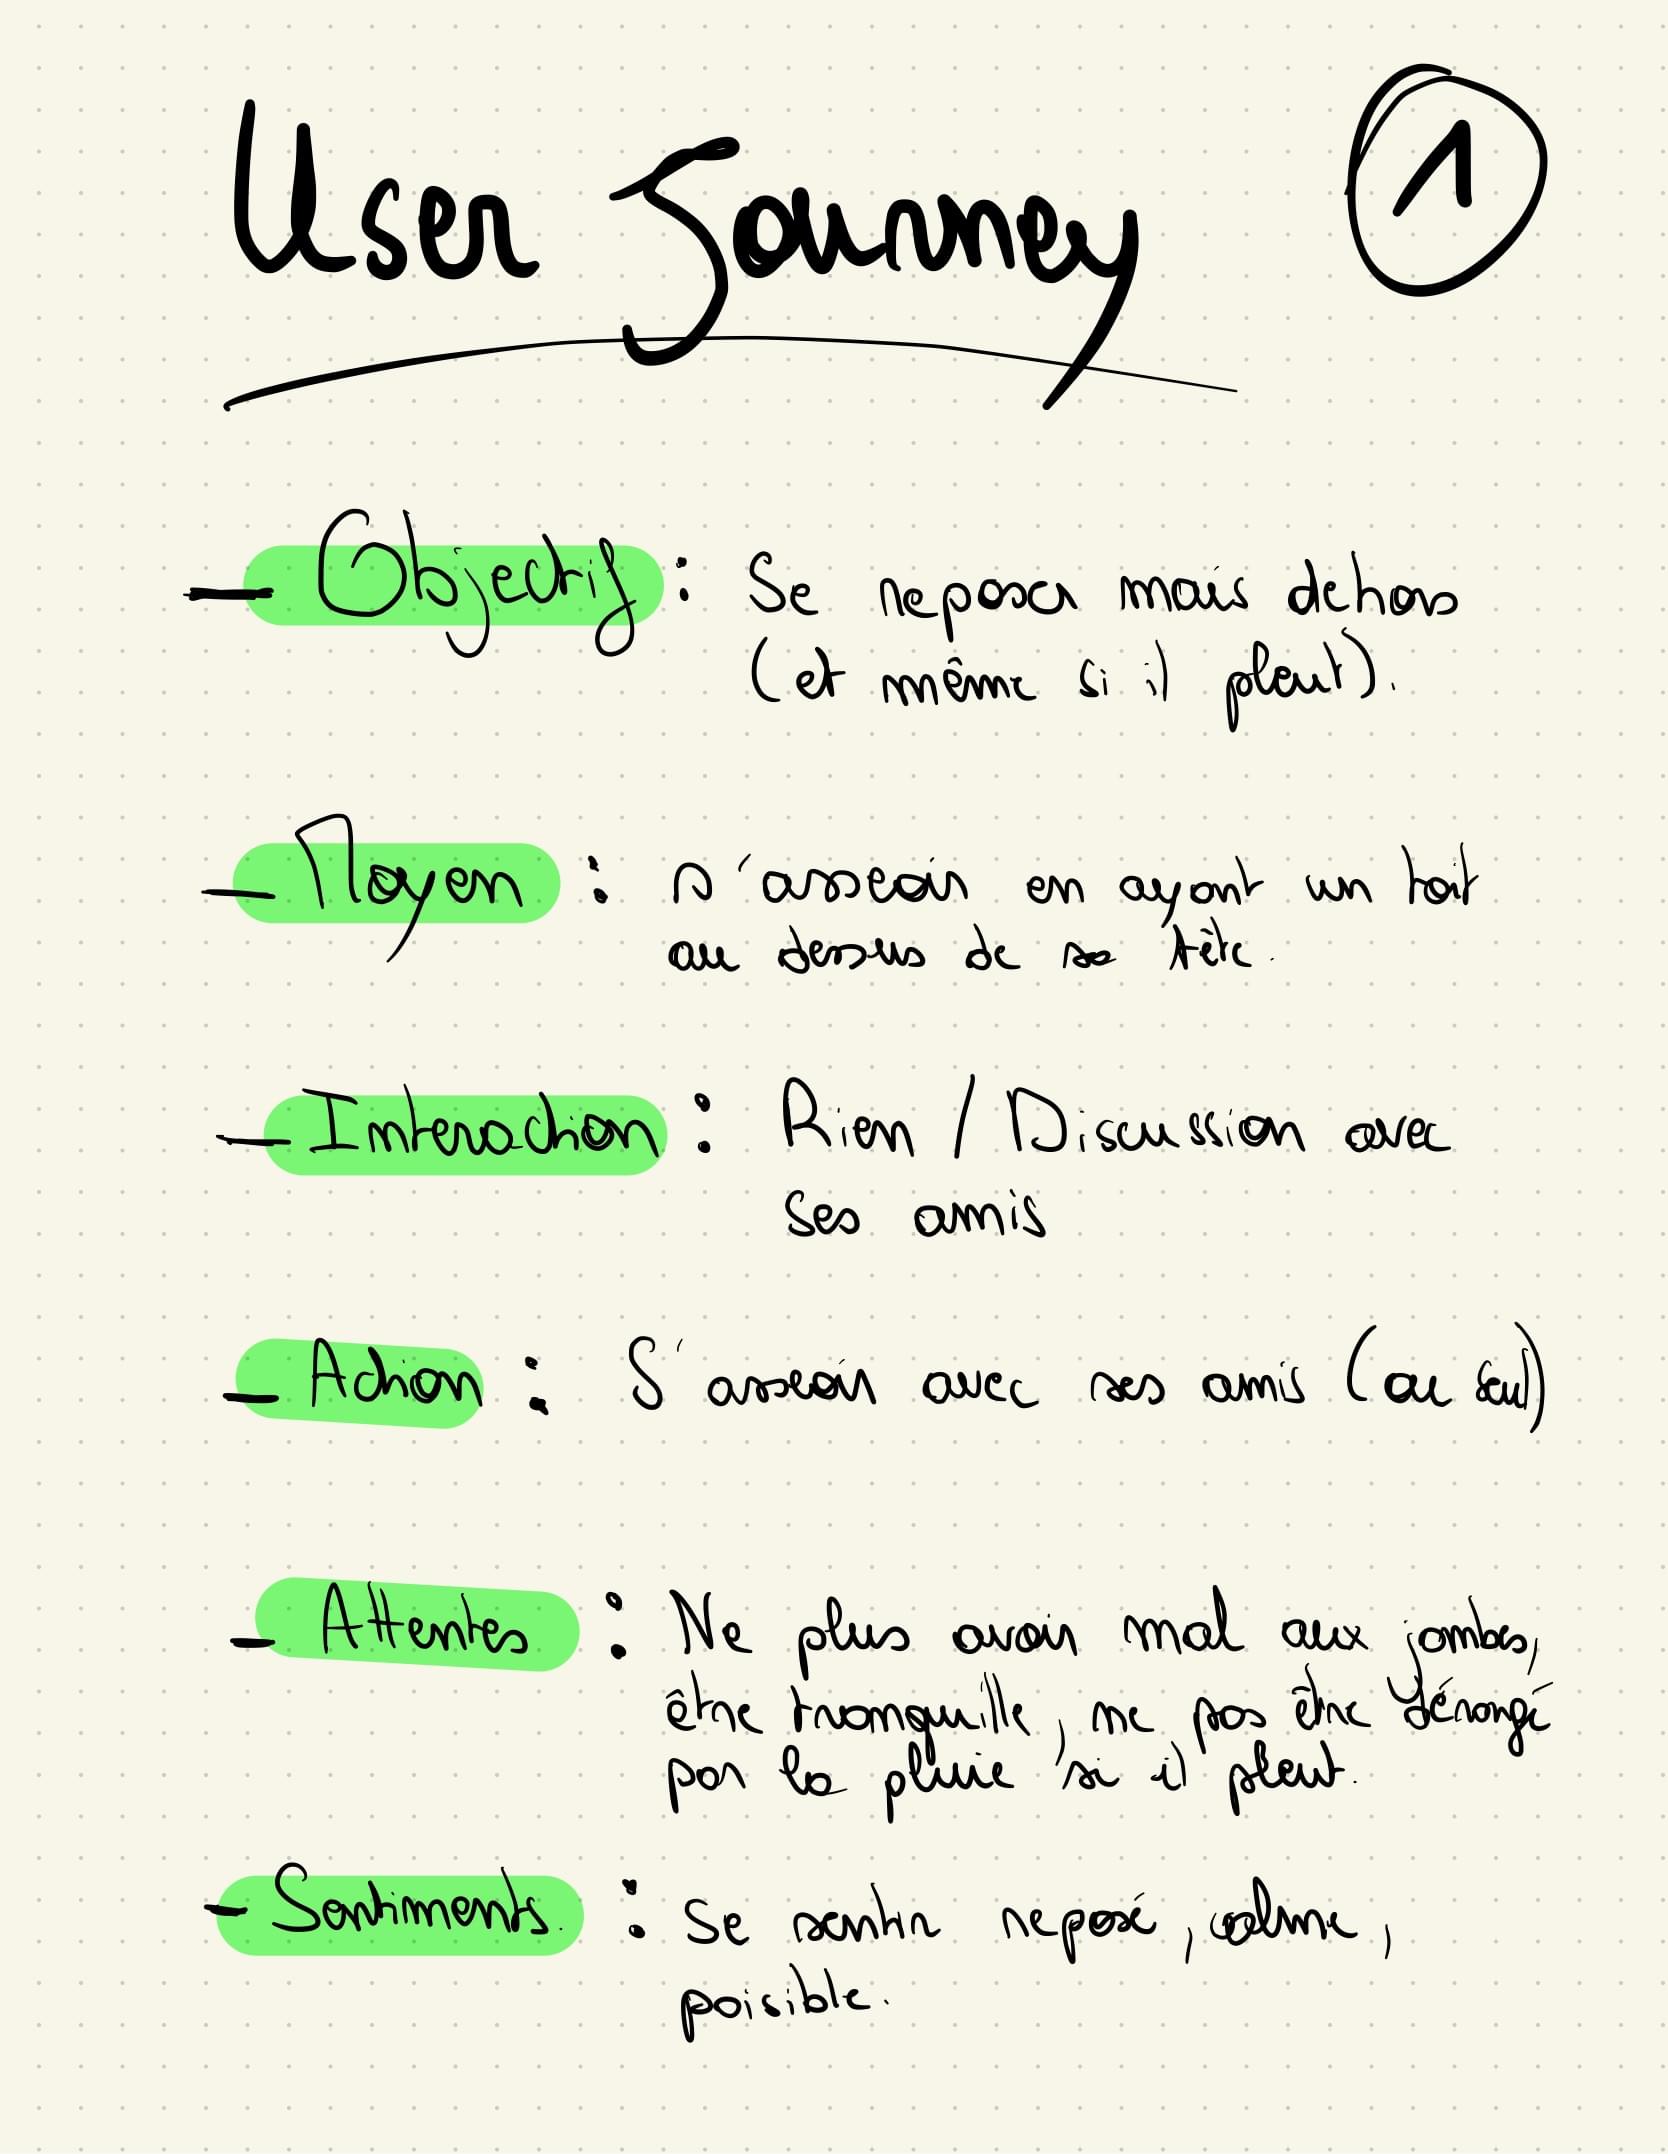 User Journey
1
- Objectif : Se reposer mais dehors
(et même si il pleut).
- Moyen : s'asseoir en ayant un toit
au dessus de sa tête.
- Interaction : Rien / Discussion avec
ses amis
- Action : S'asseoir avec ses amis (ou seul)
- Attentes : Ne plus avoir mal aux jambes,
être tranquille, ne pas être dérangé
par la pluie si il pleut.
- Sentiments : Se sentir reposé, calme,
paisible.